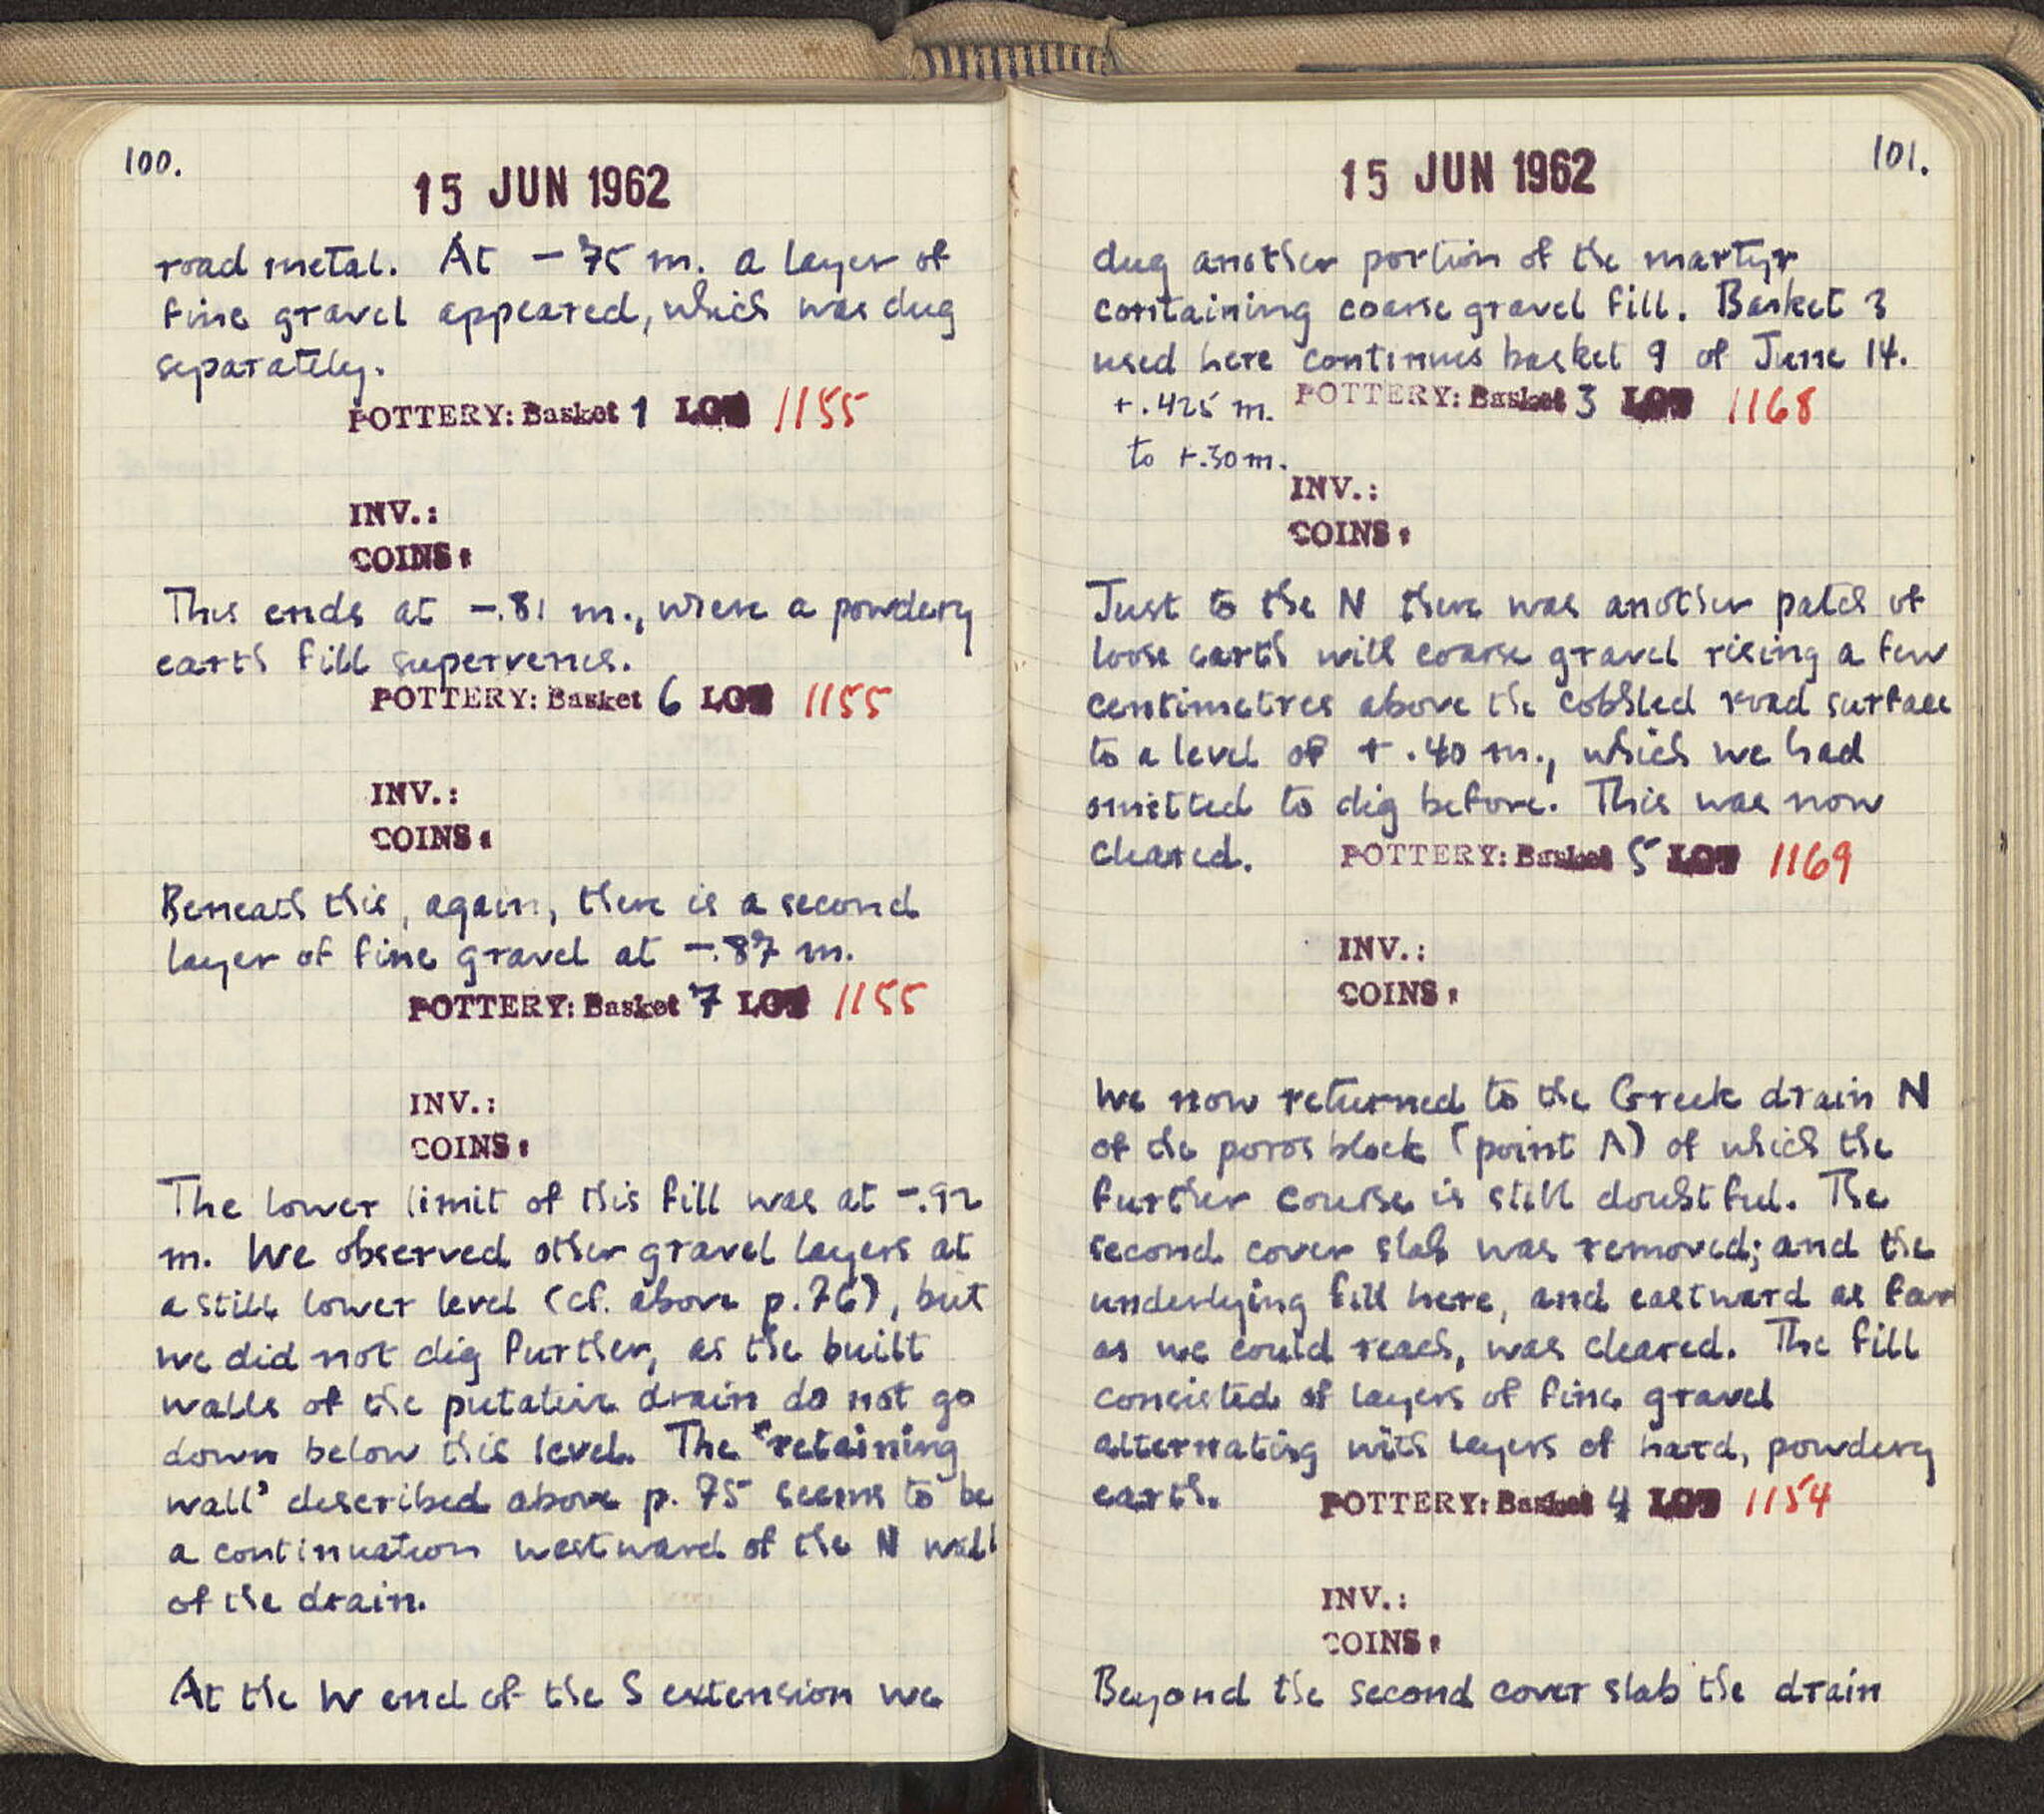 100.
15 JUN 1962
road metal. At -.75 m. a layer of
fine gravel appeared, which was dug
separately.
POTTERY: Basket 1 LOT 1155
INV.:
COINS:
This ends at -.81 m., where a powdery
earth fill supervenes.
POTTERY: Basket 6 LOT 1155
INV.:
COINS:
Beneath this, again, there is a second
layer of fine gravel at -.87 m.
POTTERY: Basket 7 LOT 1155
INV.:
COINS:
The lower limit of this fill was at -.92
m. We observed other gravel layers at
a still lower level (cf. above p. 76), but
we did not dig further, as the built
walls of the putative drain do not go
down below this level. The "retaining
wall" described above p. 75 seems to be
a continuation westward of the N wall
of the drain.
At the W end of the S extension we
101.
15 JUN 1962
dug another portion of the martyr
containing coarse gravel fill. Basket 3
used here continues basket 9 of June 14.
+.425 m. POTTERY: Basket 3 LOT 1168
to +.30 m.
INV.:
COINS:
Just to the N there was another patch of
loose earth with coarse gravel rising a few
centimetres above the cobbled road surface
to a level of +.40 m., which we had
omitted to dig before. This was now
cleared. POTTERY: Basket 5 LOT 1169
INV.:
COINS:
We now returned to the Greek drain N
of the poros block (point A) of which the
further course is still doubtful. The
second cover slab was removed; and the
underlying fill here, and eastward as far
as we could reach, was cleared. The fill
consisted of layers of fine gravel
alternating with layers of hard, powdery
earth. POTTERY: Basket 4 LOT 1154
INV.:
COINS:
Beyond the second cover slab the drain